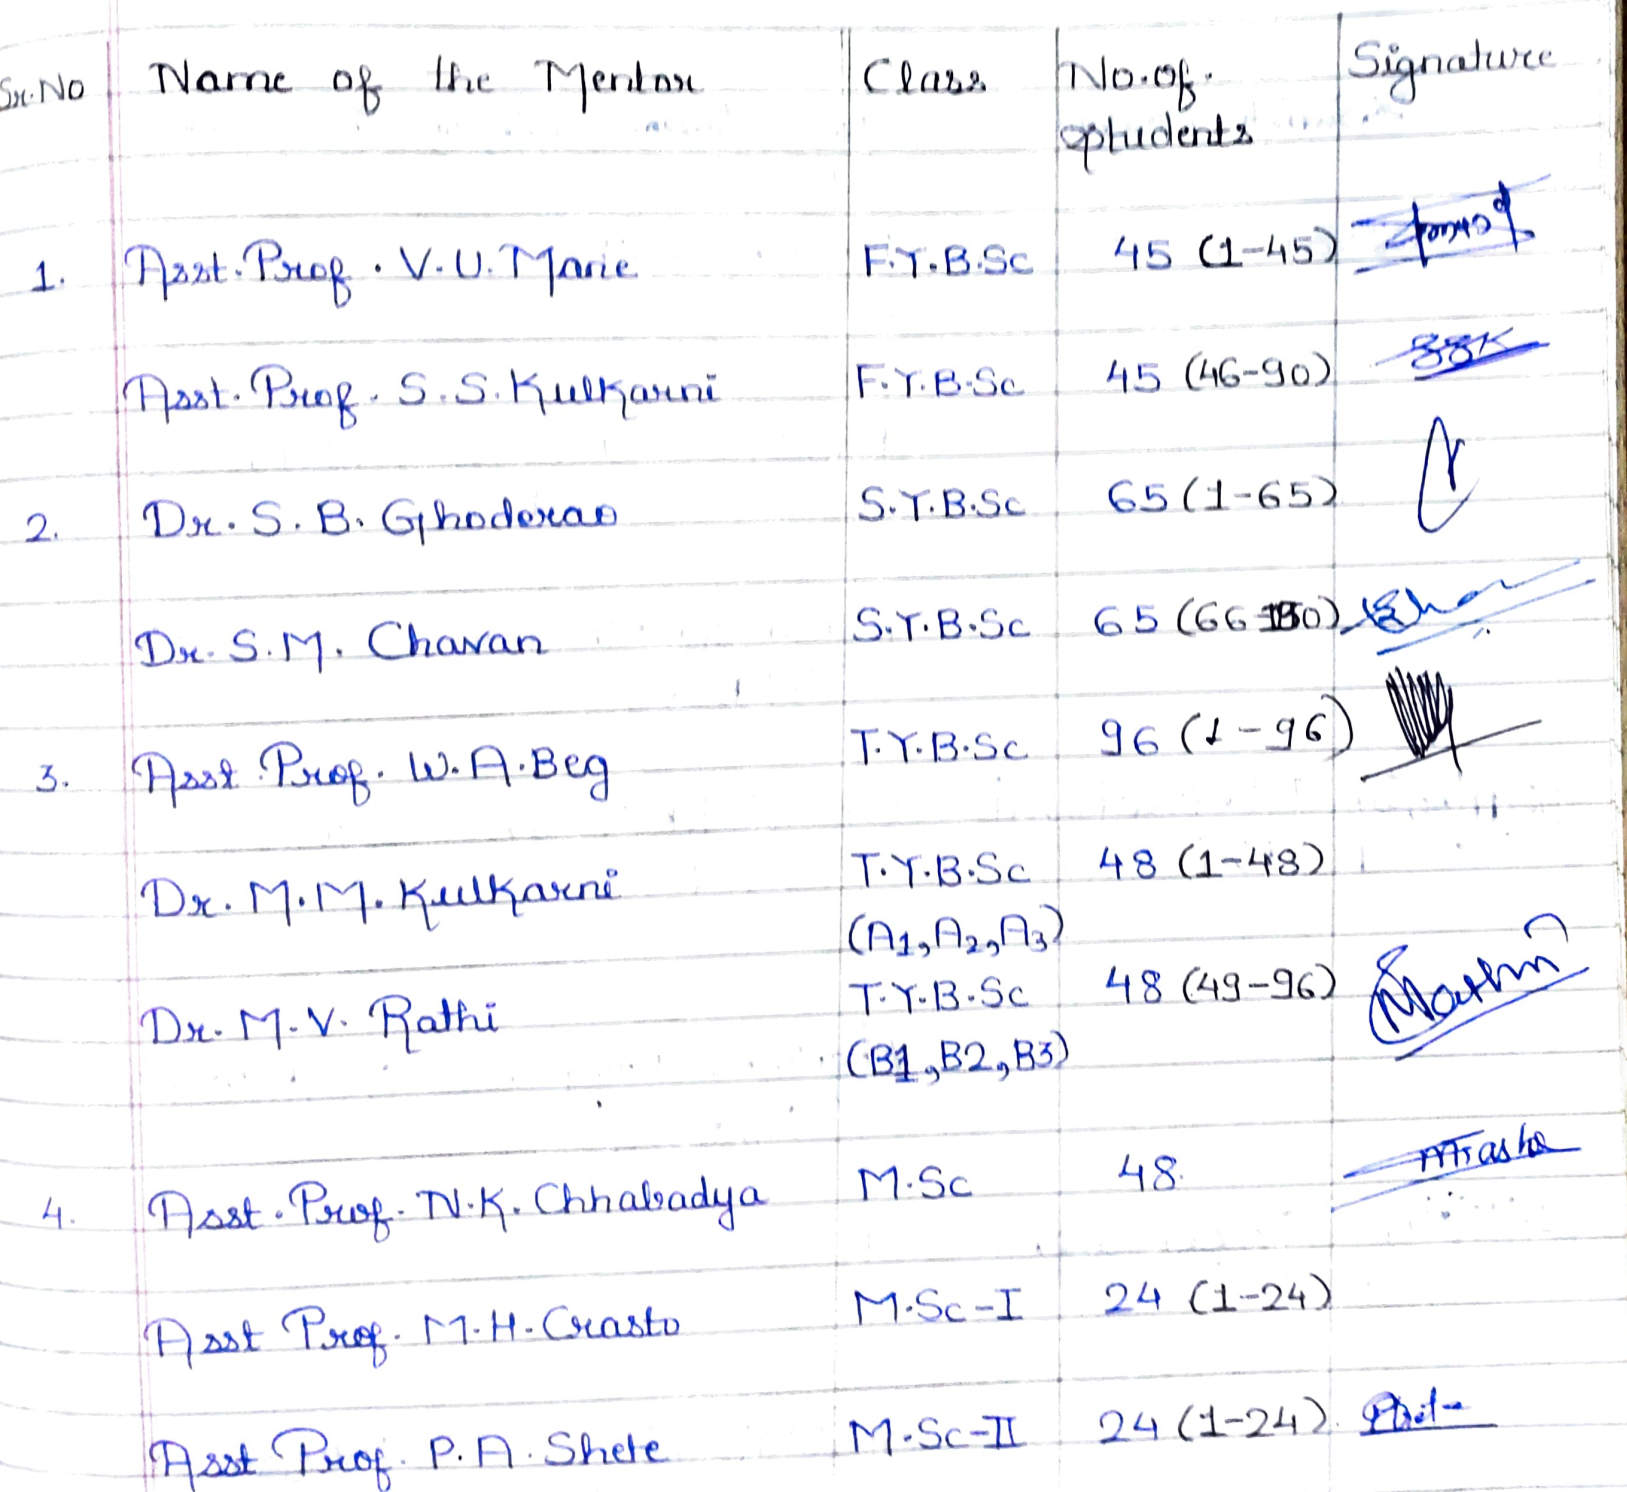 Sr.No Name of the Mentor Class No. of. students Signature
1. Asst. Prof. V.U. Mane F.Y.B.Sc 45 (1-45)
Asst. Prof. S.S. Kulkarni F.Y.B.Sc 45 (46-90) SSK
2. Dr. S. B. Ghoderao S.Y.B.Sc 65 (1-65)
Dr. S.M. Chavan S.Y.B.Sc 65 (66-130)
3. Asst. Prof. W.A. Beg T.Y.B.Sc 96 (1-96)
Dr. M.M. Kulkarni T.Y.B.Sc 48 (1-48)
(A1, A2, A3)
Dr. M.V. Rathi T.Y.B.Sc 48 (49-96)
(B1, B2, B3)
4. Asst. Prof. N.K. Chhabadya M.Sc 48.
Asst Prof. M.H. Crasto M.Sc-I 24 (1-24)
Asst Prof. P.A. Shete M.Sc-II 24 (1-24)